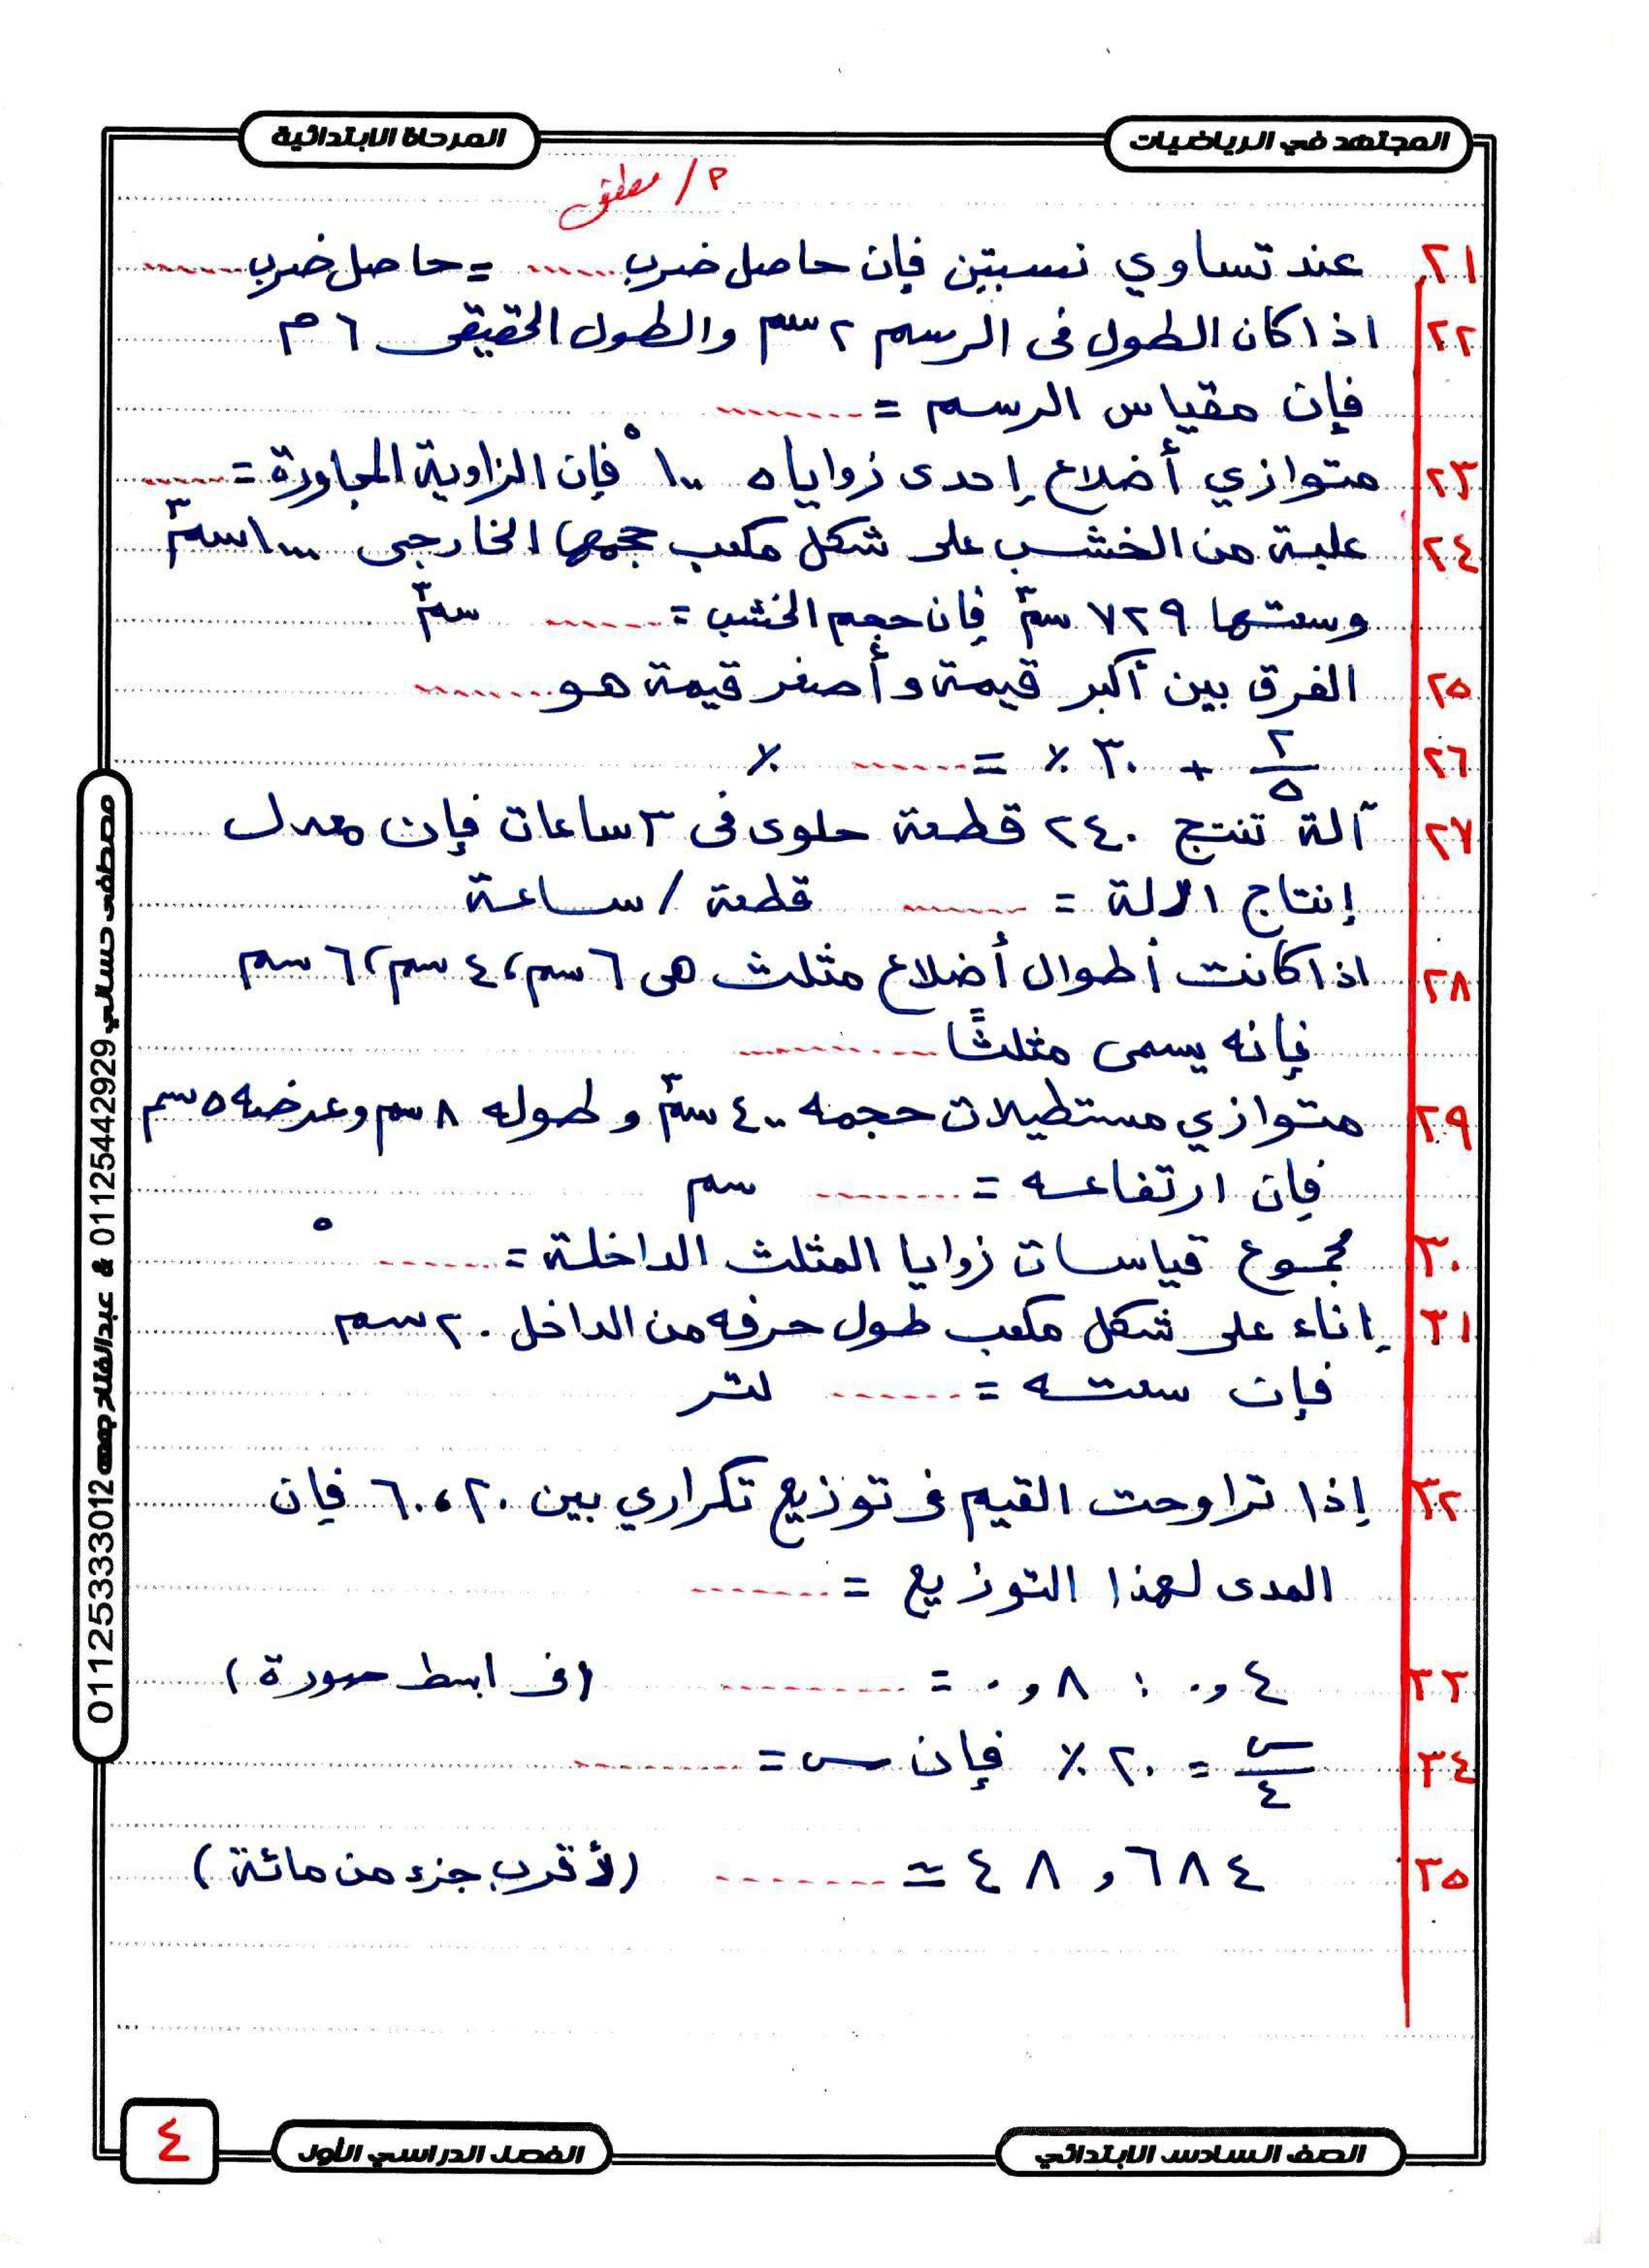 المجتهد في الرياضيات
المرحلة الابتدائية
٢١ عند تساوي نسبتين فإن حاصل ضرب ...... = حاصل ضرب ......
٢٢ اذا كان الطول فى الرسم ٢ سم والطول الحقيقى ٦ م
فإن مقياس الرسم = ........
٢٣ متوازي أضلاع إحدى زواياه ١٠٠° فإن الزاوية المجاورة = ......
٢٤ علبة من الخشب على شكل مكعب حجمها الخارجى ١٠٠٠ سم٣
وسعتها ٧٢٩ سم٣ فإن حجم الخشب = ...... سم٣
٢٥ الفرق بين أكبر قيمة وأصغر قيمة هو ........
٢٦ ٢/٥ + ٣٠ ٪ = ...... ٪
٢٧ آلة تنتج ٢٤٠ قطعة حلوى فى ٣ ساعات فإن معدل
إنتاج الالة = ...... قطعة / ساعة
٢٨ اذا كانت أطوال أضلاع مثلث هى ٦ سم، ٤ سم، ٦ سم
فإنه يسمى مثلثًا ........
٢٩ متوازي مستطيلات حجمه ٤٠٠ سم٣ وطوله ٨ سم وعرضه ٥ سم
فإن ارتفاعه = ...... سم
٣٠ مجموع قياسات زوايا المثلث الداخلة = ......°
٣١ إناء على شكل مكعب طول حرفه من الداخل ٢٠ سم
فإن سعته = ...... لتر
٣٢ إذا تراوحت القيم فى توزيع تكراري بين ٢٠، ٦٠ فإن
المدى لهذا التوزيع = ......
٣٣ ٠,٤ : ٠,٨ = ........ (فى ابسط صورة)
٣٤ س/٤ = ٢٠ ٪ فإن س = ........
٣٥ ٤٨,٦٨٤ ≃ ........ (لأقرب جزء من مائة)
مصطفى حسالي 01125442929 & عبدالفتاح جمعه 01125333012
الصف السادس الابتدائي
الفصل الدراسي الأول
٤